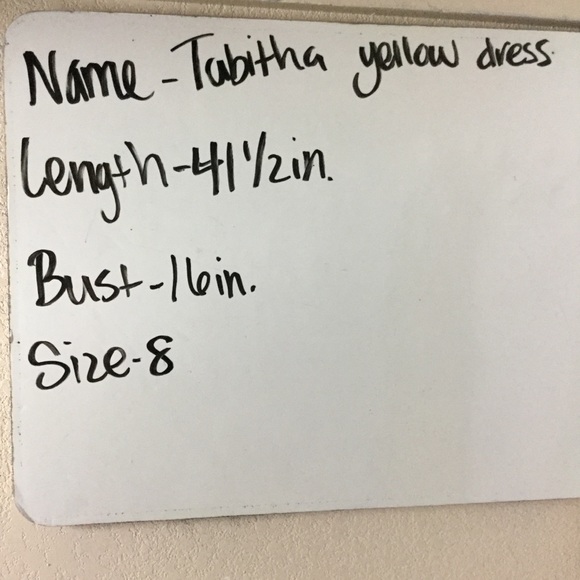 Name - Tabitha yellow dress
Length - 41 1/2 in.
Bust - 16 in.
Size - 8